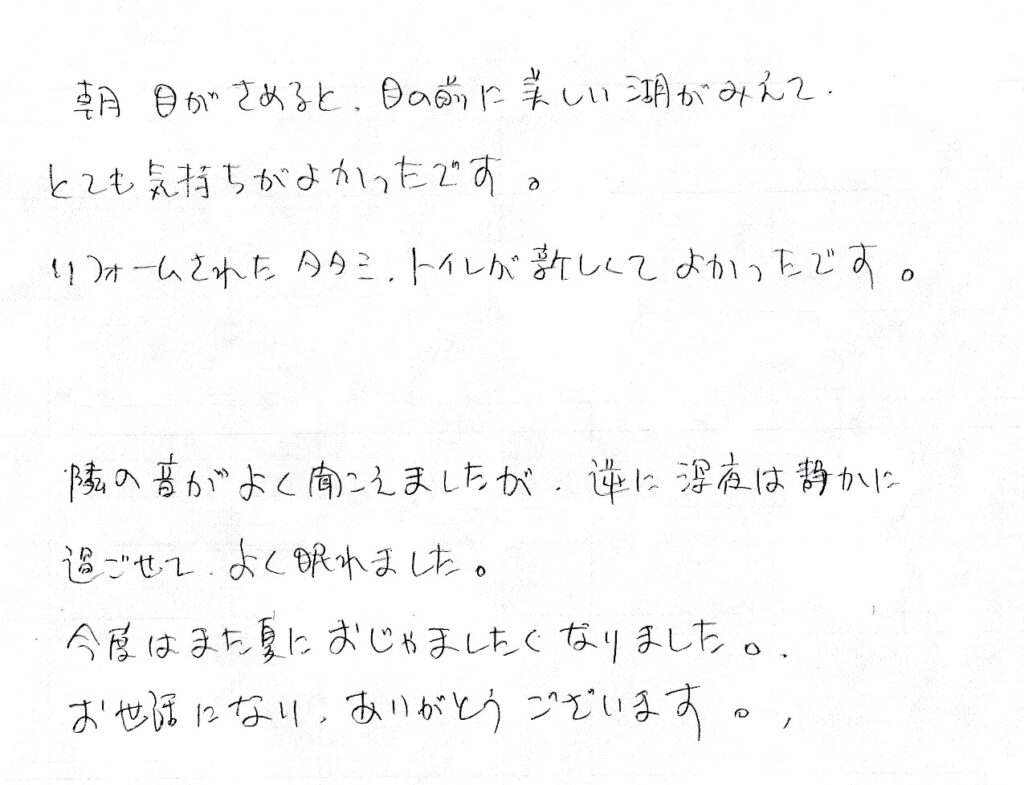 朝 目がさめると、目の前に美しい湖がみえて、
とても気持ちがよかったです。
リフォームされたタタミ、トイレが新しくてよかったです。
隣の音がよく聞こえましたが、逆に深夜は静かに
過ごせて、よく眠れました。
今度はまた夏におじゃましたくなりました。
お世話になり、ありがとうございます。